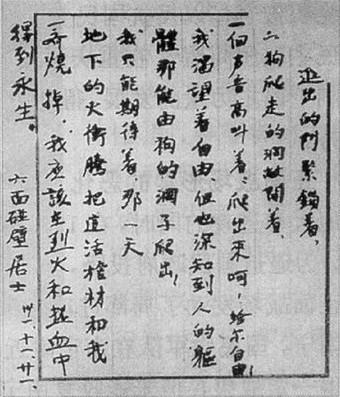 進出的門緊鎖着,
为狗爬走的洞敞開着,
一個声音高叫着:爬出來呵!給尔自由!
我渴望着自由,但也深知到人的軀
體那能由狗的洞子爬出!
我只能期待着,那一天
地下的火衝騰把這活棺材和我
一齊燒掉,我應該在烈火和热血中
得到永生。
六面碰壁居士 卅一、十一、廿一.